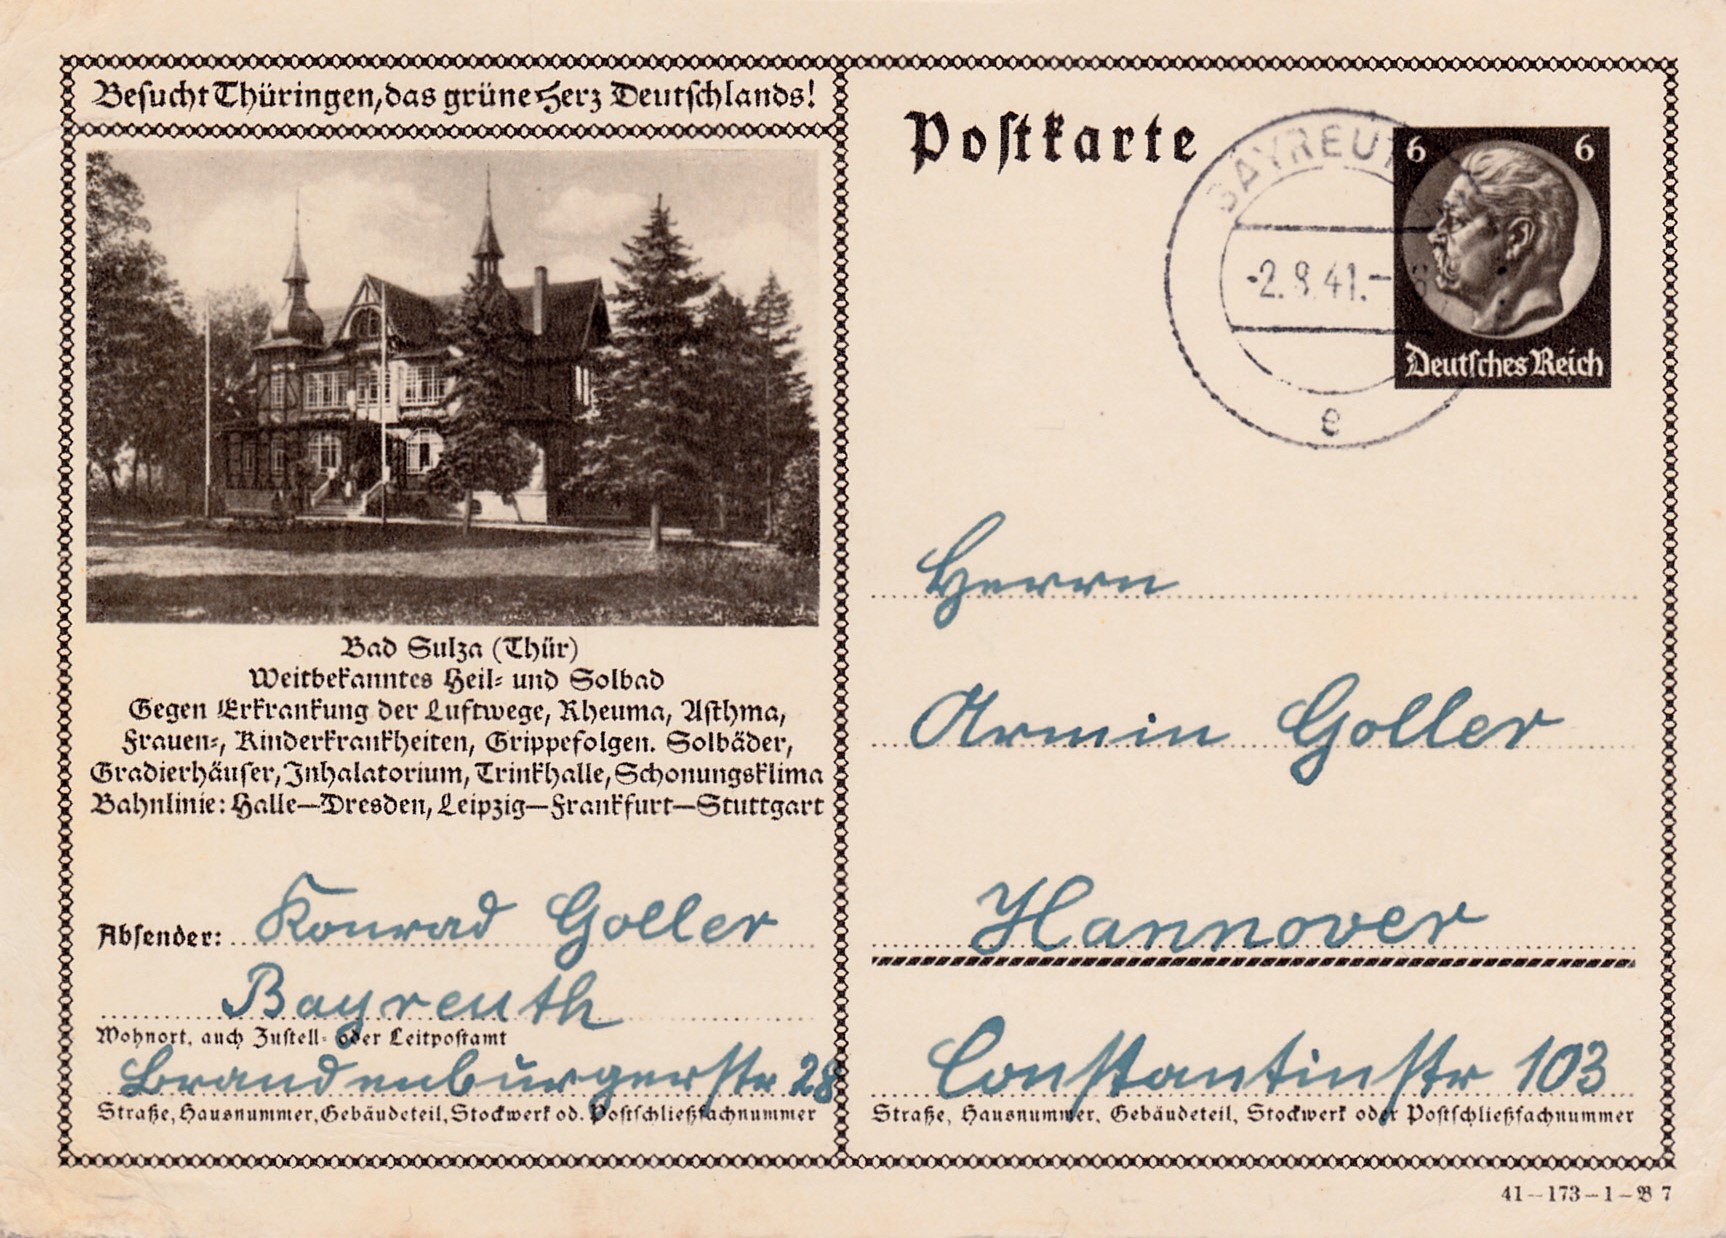 Besucht Thüringen, das grüne Herz Deutschlands!
Bad Sulza (Thür)
Weitbekanntes Heil- und Solbad
Gegen Erkrankung der Luftwege, Rheuma, Asthma,
Frauen-, Kinderkrankheiten, Grippefolgen. Solbäder,
Gradierhäuser, Inhalatorium, Trinkhalle, Schonungsklima
Bahnlinie: Halle—Dresden, Leipzig—Frankfurt—Stuttgart
Absender: Konrad Goller
Bayreuth
Wohnort, auch Zustell- oder Leitpostamt
Brandenburgerstr 28
Straße, Hausnummer, Gebäudeteil, Stockwerk od. Postschließfachnummer
Postkarte
BAYREUT
-2.8.41.-
e
6 6
Deutsches Reich
Herrn
Armin Goller
Hannover
Constantinstr 103
Straße, Hausnummer, Gebäudeteil, Stockwerk oder Postschließfachnummer
41—173—1—B 7